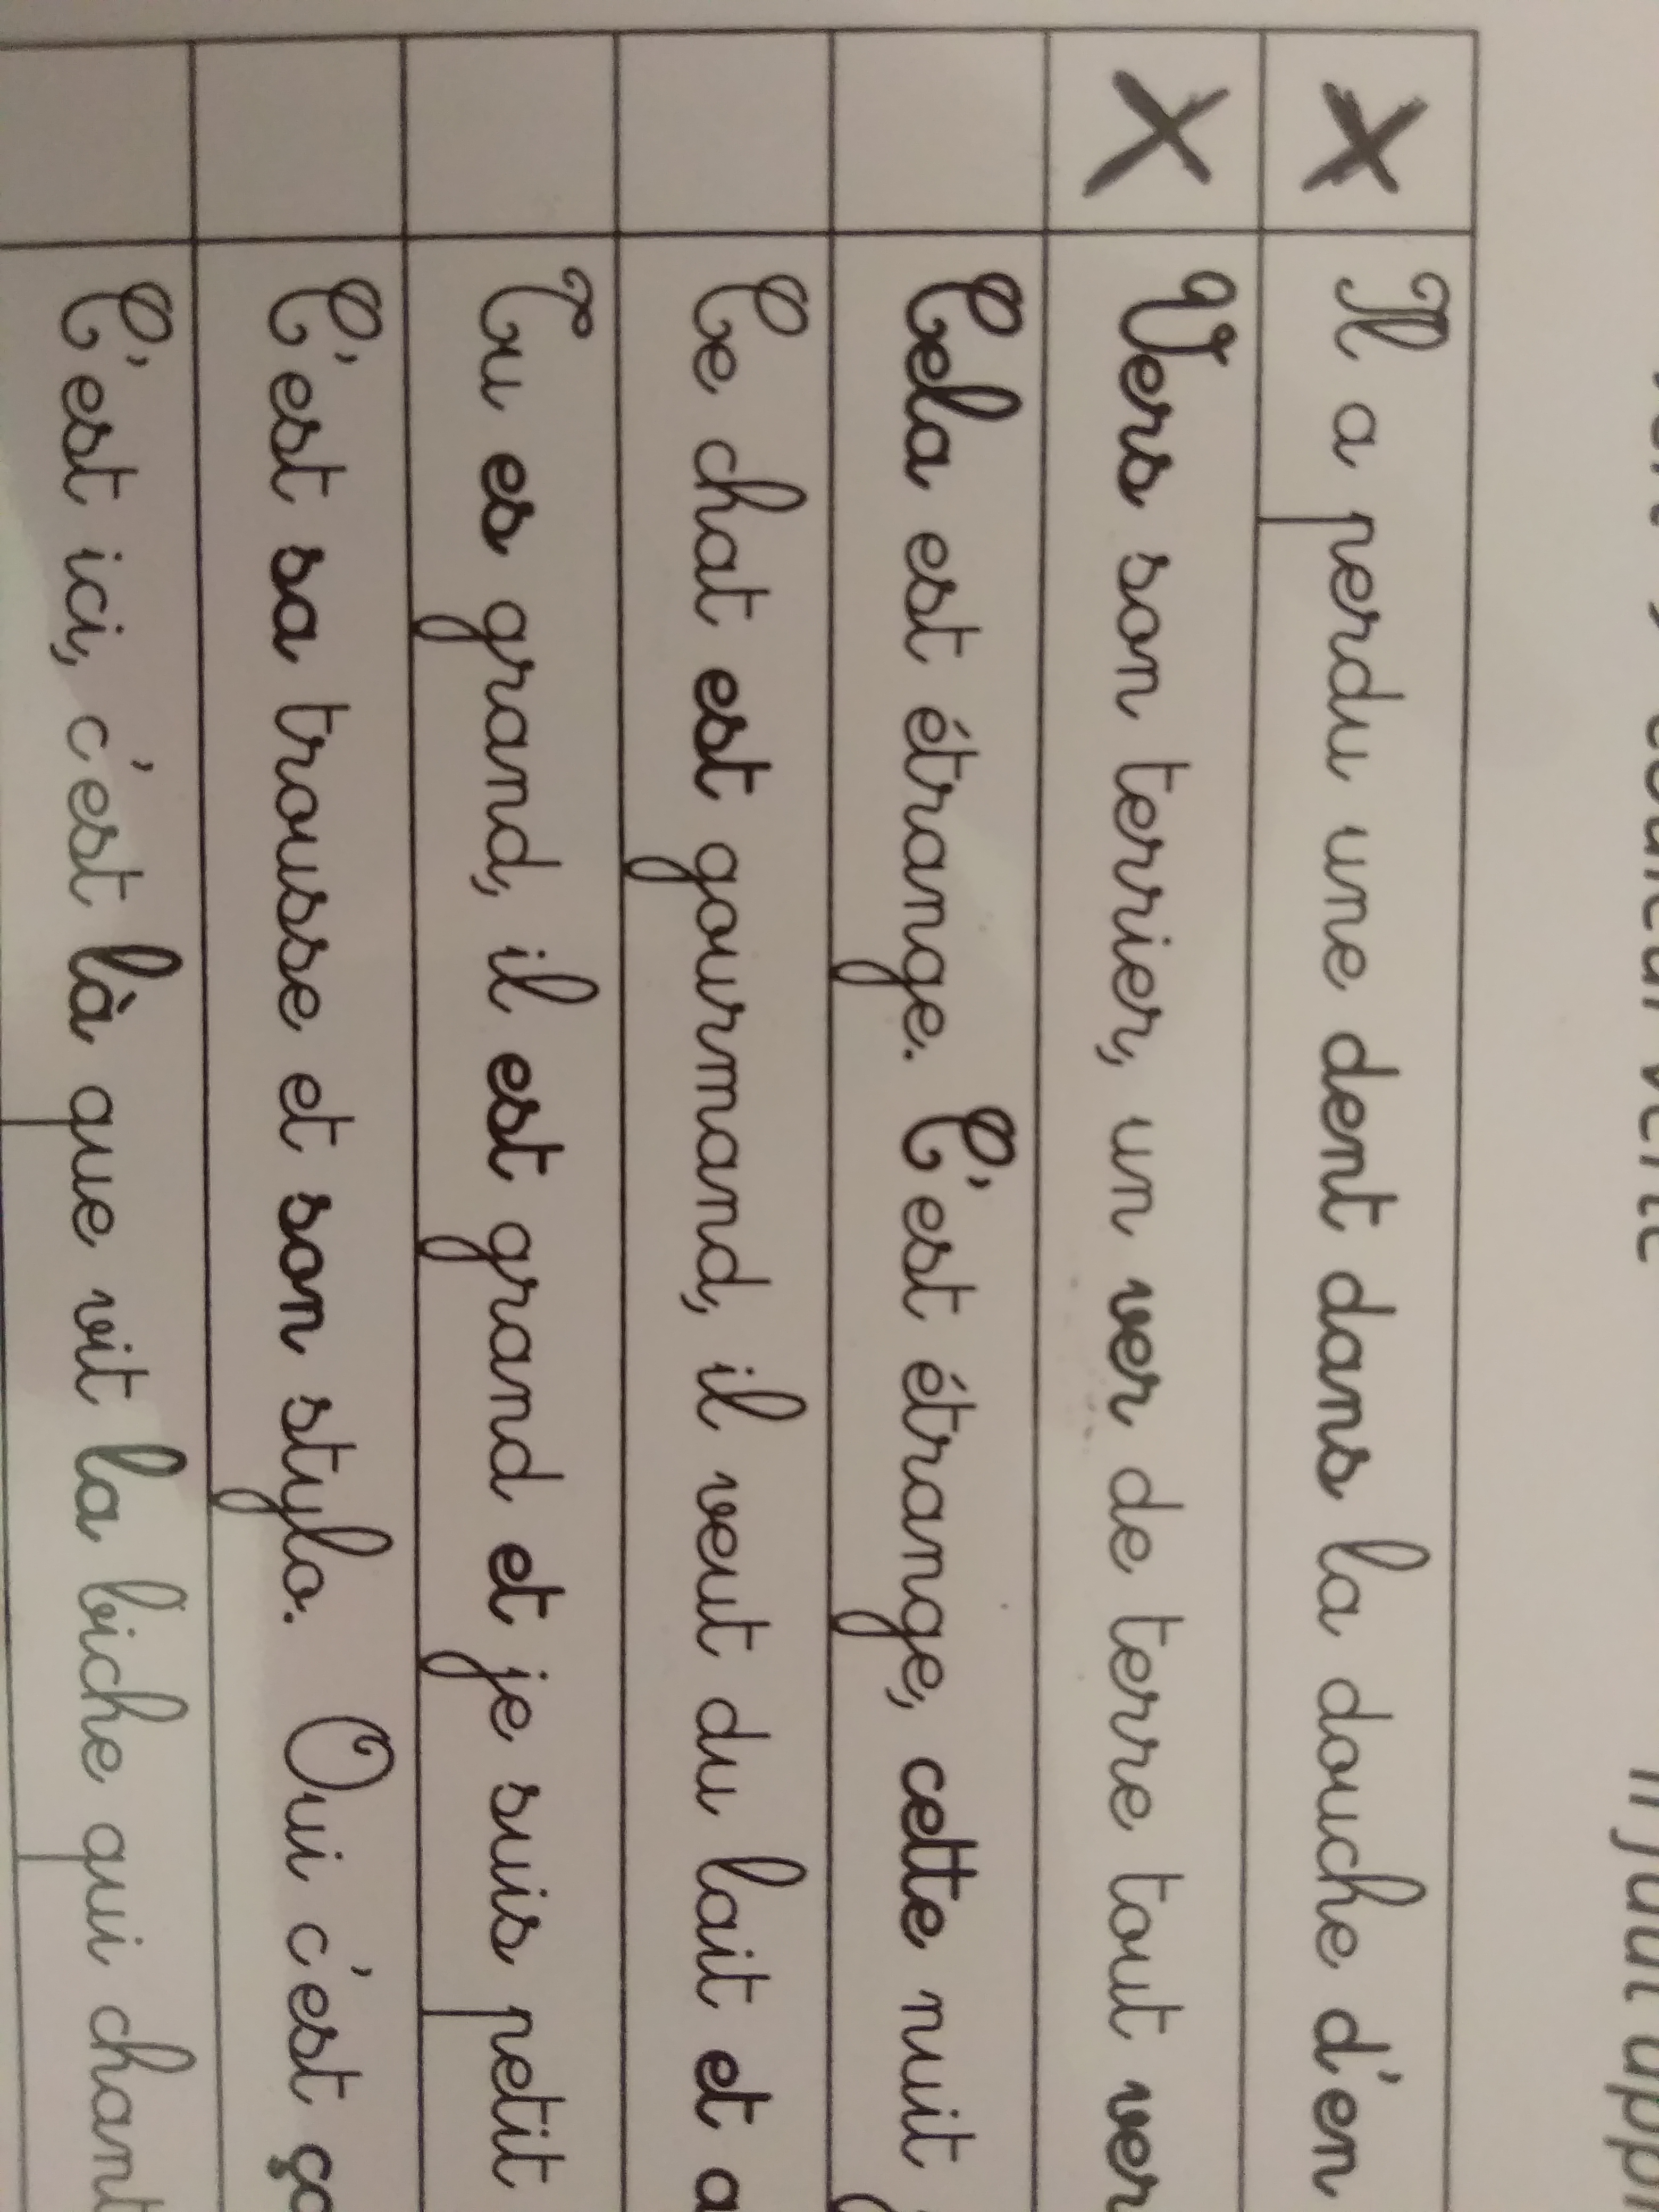 Il a perdu une dent dans la douche d'en
Vers son terrier, un ver de terre tout ver
Cela est étrange. C'est étrange, cette nuit
Ce chat est gourmand, il veut du lait et a
Tu es grand, il est grand et je suis petit
C'est sa trousse et son stylo. Oui c'est ça
C'est ici, c'est là que vit la biche qui chant